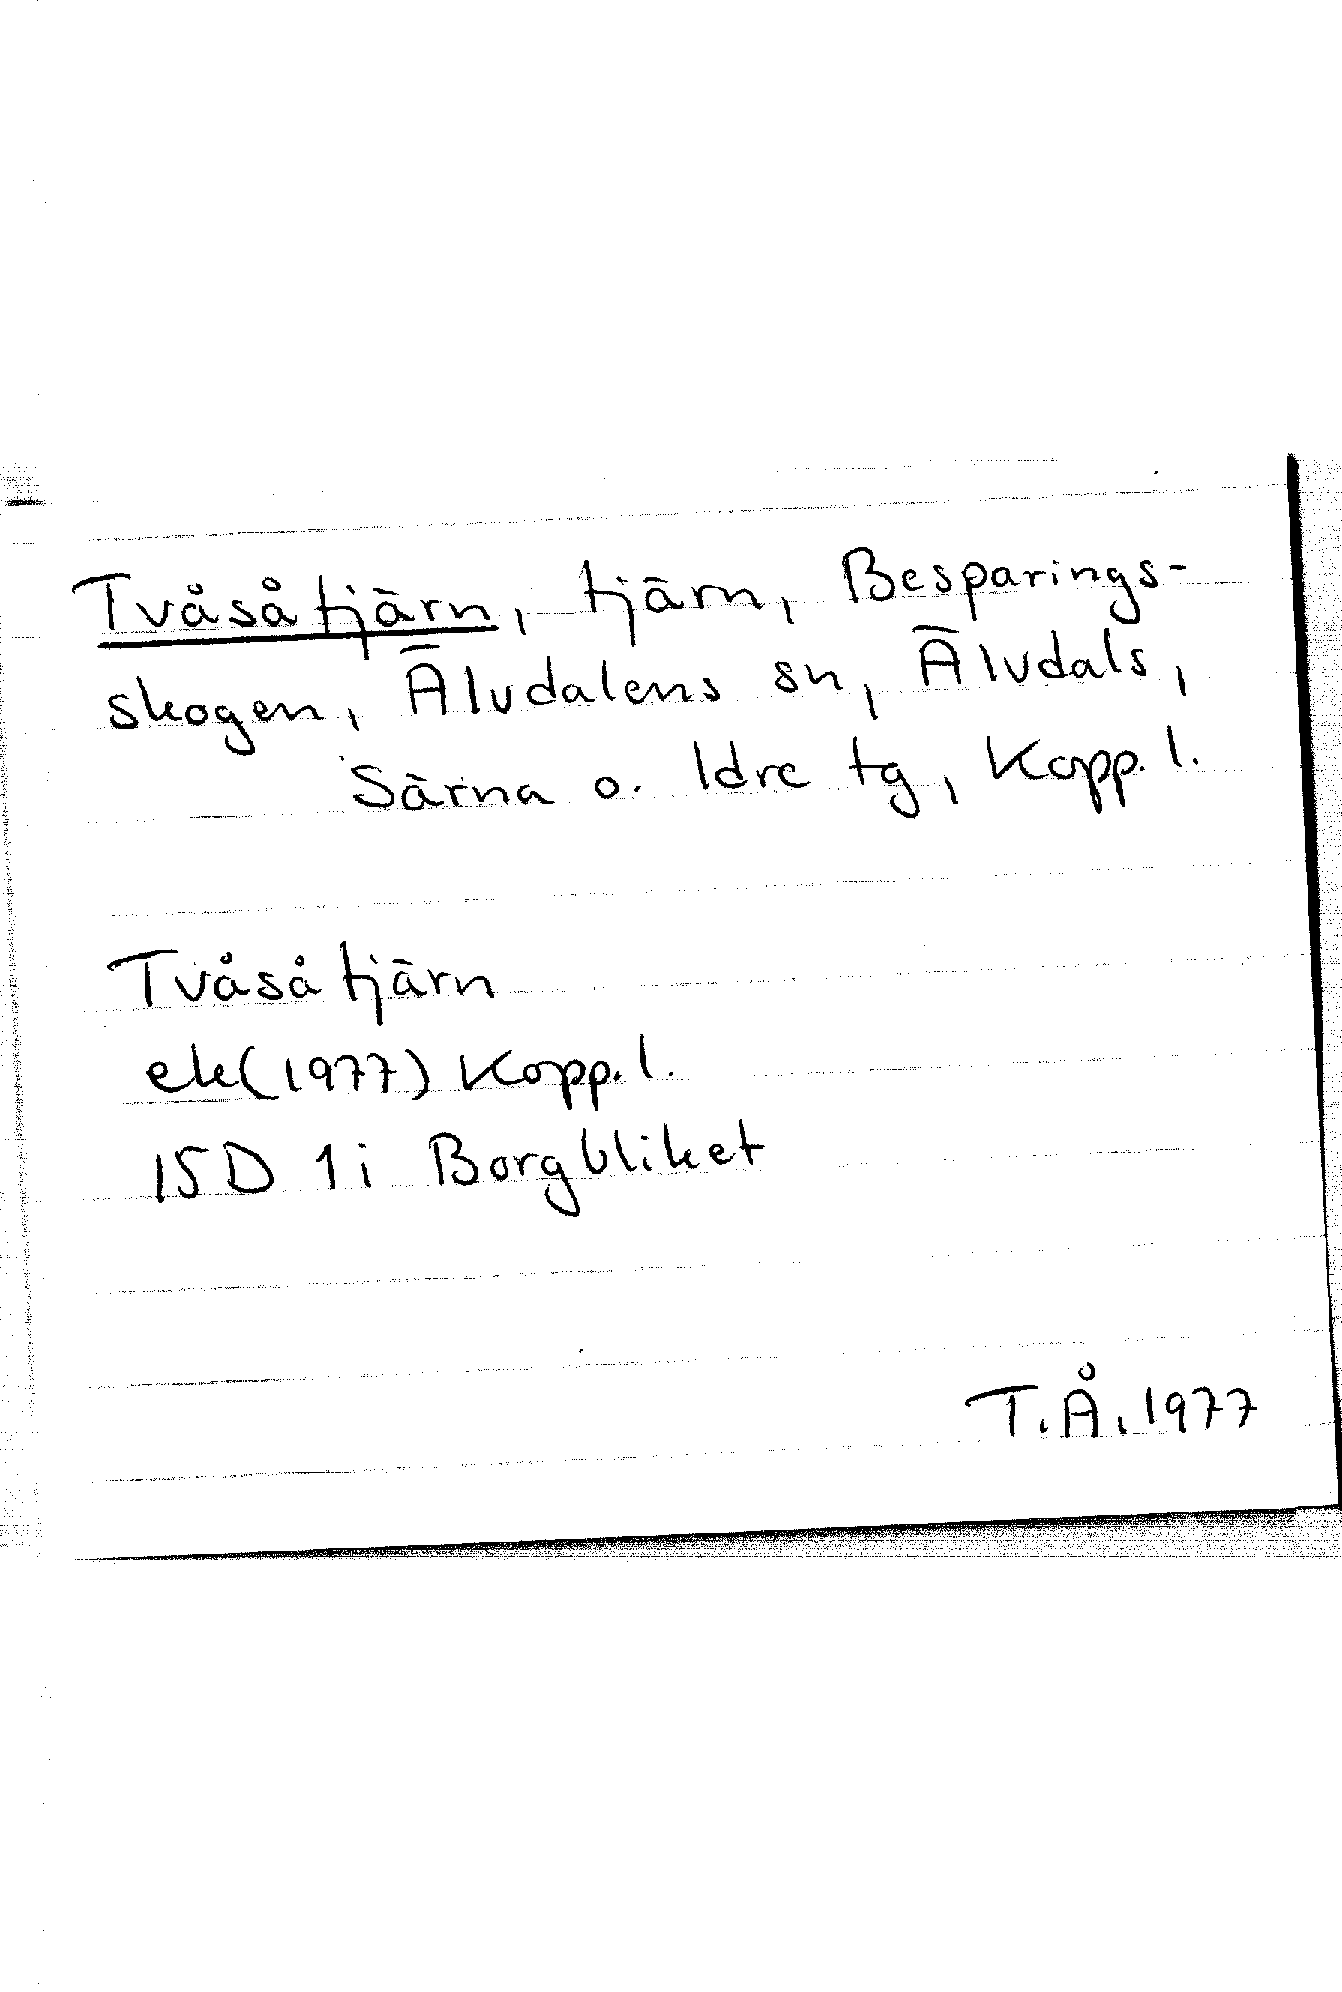 Tvåsåtjärn, tjärn, Besparings-
skogen, Älvdalens sn, Älvdals,
Särna o. Idre tg, Kopp. l.
Tvåsåtjärn
ek(1977) Kopp. l.
15D 1i Borgbliket
T.Å. 1977